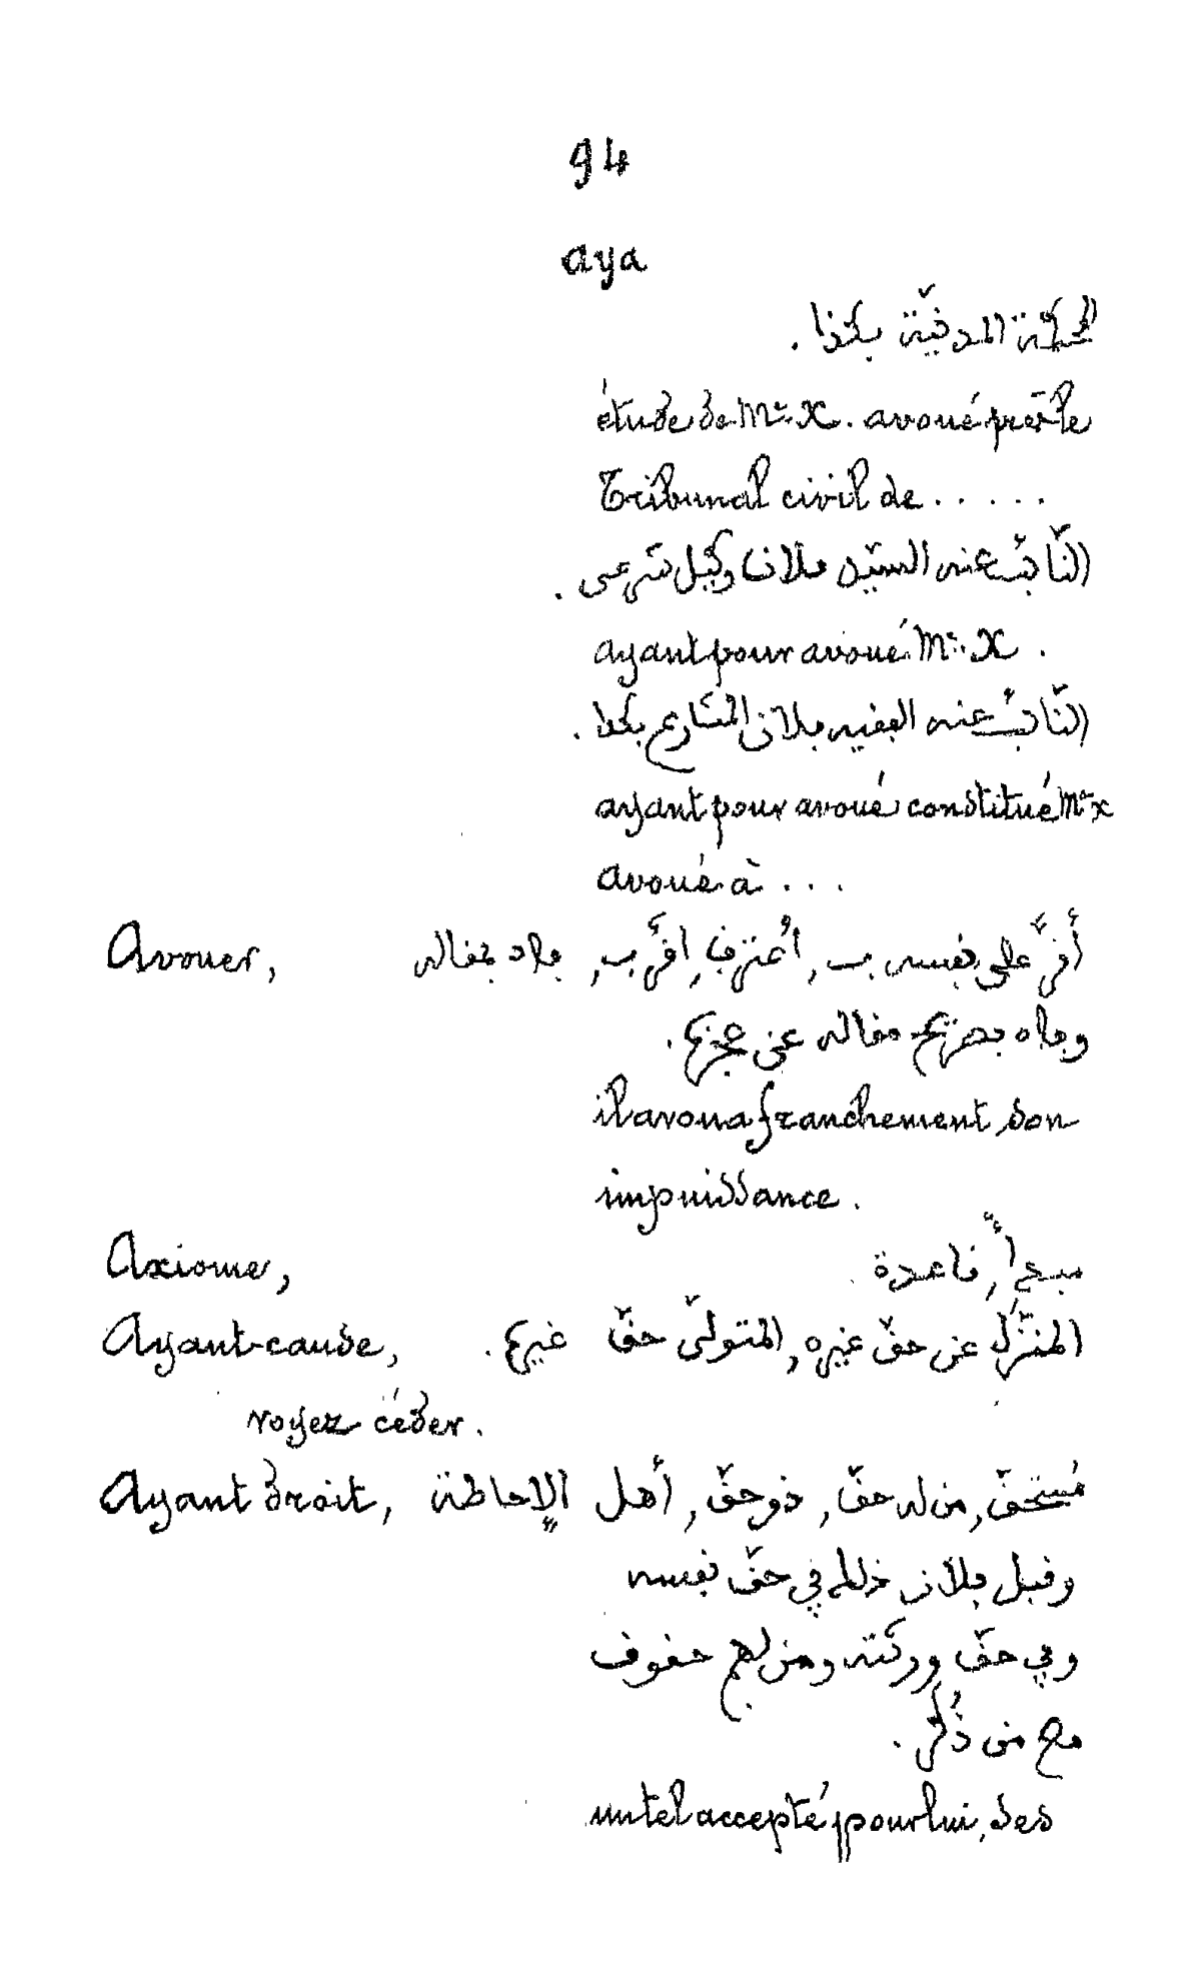 94
aya
المحكمة المدنيّة بكذا .
étude de Me. X. avoué près le
Tribunal civil de . . . . .
النّائب عنه السيّد فلان وكيل شرعى .
ayant pour avoué Me. X .
النّائب عنه الفقيه فلان المشارع بكذا .
ayant pour avoué constitué Me X
avoué à . . .
Avouer, أقرّ على نفسه بـ, أعترف, اقرّ بـ, فاه بمقاله
وفاه بصريح مقاله عن عجزه .
il avoua franchement son
impuissance .
Axiome, مبدأ, قاعدة
Ayant-cause, المنزّل عن حقّ غيره, المتولّى حقّ غيره .
voyez céder .
Ayant droit, مُستحقّ, من له حقّ, ذو حقّ, أهل الإحاطة
وقبل فلان ذلك في حقّ نفسه
وفي حقّ ورثته ومن لهم حقوق
مع من ذُكر .
un tel accepte, pour lui, ses